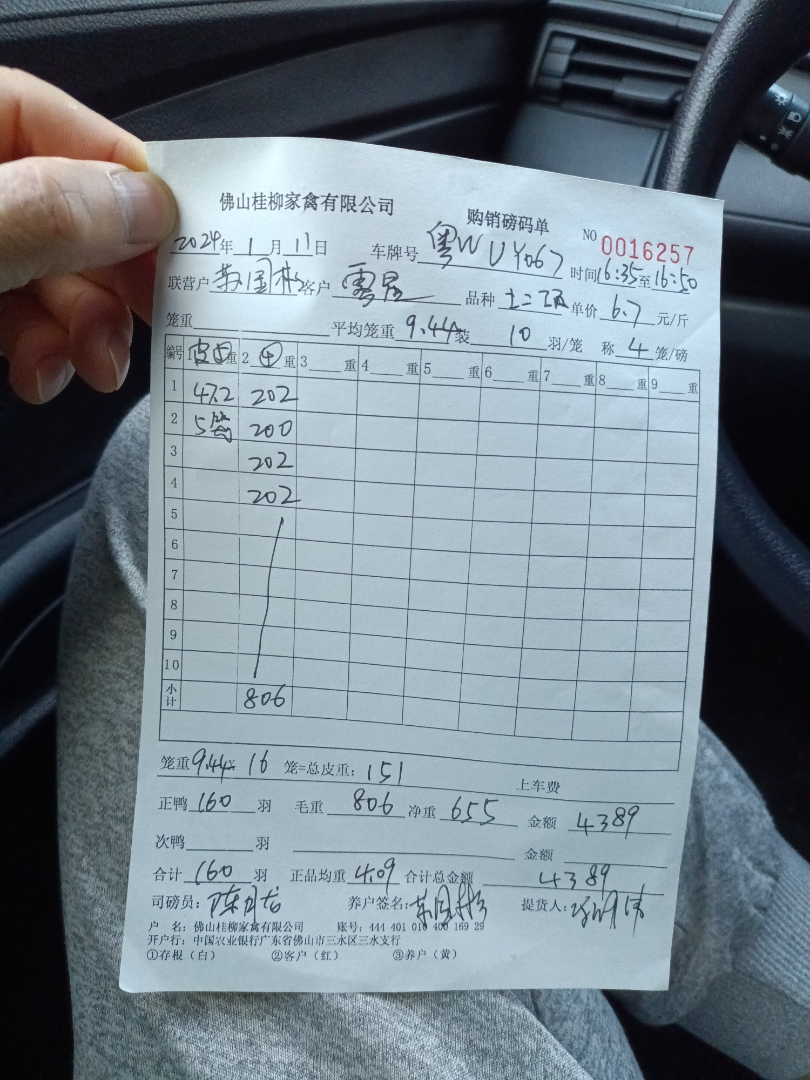 佛山桂柳家禽有限公司 购销磅码单 NO 0016257
2024年 1月 11日 车牌号 粤W UY067 时间16:35至16:50
联营户 客户 品种 单价 6.7 元/斤
笼重 平均笼重 9.44 装 10 羽/笼 称 4 笼/磅
编号 皮 重 2 重 3 重 4 重 5 重 6 重 7 重 8 重 9 重
1 47.2 202
2 5笼 200
3 202
4 202
5
6
7
8
9
10
小计 806
笼重9.44× 16 笼=总皮重: 151 上车费
正鸭 160 羽 毛重 806 净重 655 金额 4389
次鸭 羽 金额
合计 160 羽 正品均重 4.09 合计总金额 4389
司磅员: 养户签名: 提货人:
户 名: 佛山桂柳家禽有限公司 账号: 444 401 010 400 169 29
开户行: 中国农业银行广东省佛山市三水区三水支行
①存根（白） ②客户（红） ③养户（黄）